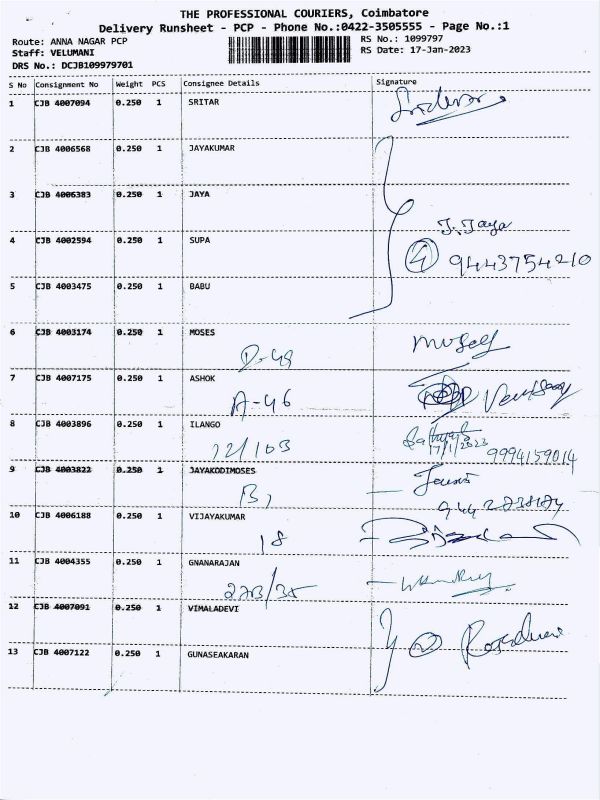 THE PROFESSIONAL COURIERS, Coimbatore
Delivery Runsheet - PCP - Phone No.:0422-3505555 - Page No.:1
Route: ANNA NAGAR PCP
RS No.: 1099797
Staff: VELUMANI
RS Date: 17-Jan-2023
DRS No.: DCJB109979701
S No Consignment No Weight PCS Consignee Details Signature
1 CJB 4007094 0.250 1 SRITAR
2 CJB 4006568 0.250 1 JAYAKUMAR
3 CJB 4006383 0.250 1 JAYA
J. Jaya
4 CJB 4002594 0.250 1 SUPA
4 9443754210
5 CJB 4003475 0.250 1 BABU
6 CJB 4003174 0.250 1 MOSES
D-49
7 CJB 4007175 0.250 1 ASHOK
A-46
8 CJB 4003896 0.250 1 ILANGO
12/103 17/1/2023 9994159014
9 CJB 4003822 0.250 1 JAYAKODIMOSES
10 CJB 4006188 0.250 1 VIJAYAKUMAR
18
11 CJB 4004355 0.250 1 GNANARAJAN
12 CJB 4007091 0.250 1 VIMALADEVI
13 CJB 4007122 0.250 1 GUNASEAKARAN